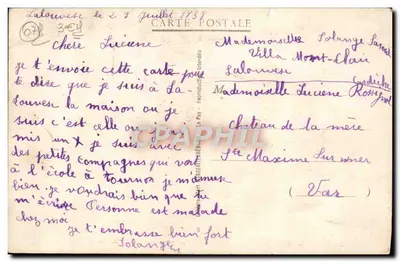 Lalouvesc le 27 juillet 1939
CARTE POSTALE
07
3=€4
chere Luciene
je t'envoie cette carte pour
te dire que je suis à La-
louvesc la maison ou je
suis c'est celle ou j'ai
mis un X je suis avec
des petites compagnes qui vont
à l'école à tournon je m'amuse
bien. je voudrais bien que tu
m'écrive Personne est malade
chez moi
je t'embrasse bien fort
Solange
Mademoiselle Solange
Villa Mont-Clair
Lalouvesc
Ardèche
Mademoiselle Luciene Rossignol
chateau de la mère
Ste Maxime Sur mer
(Var)
Cartepostale